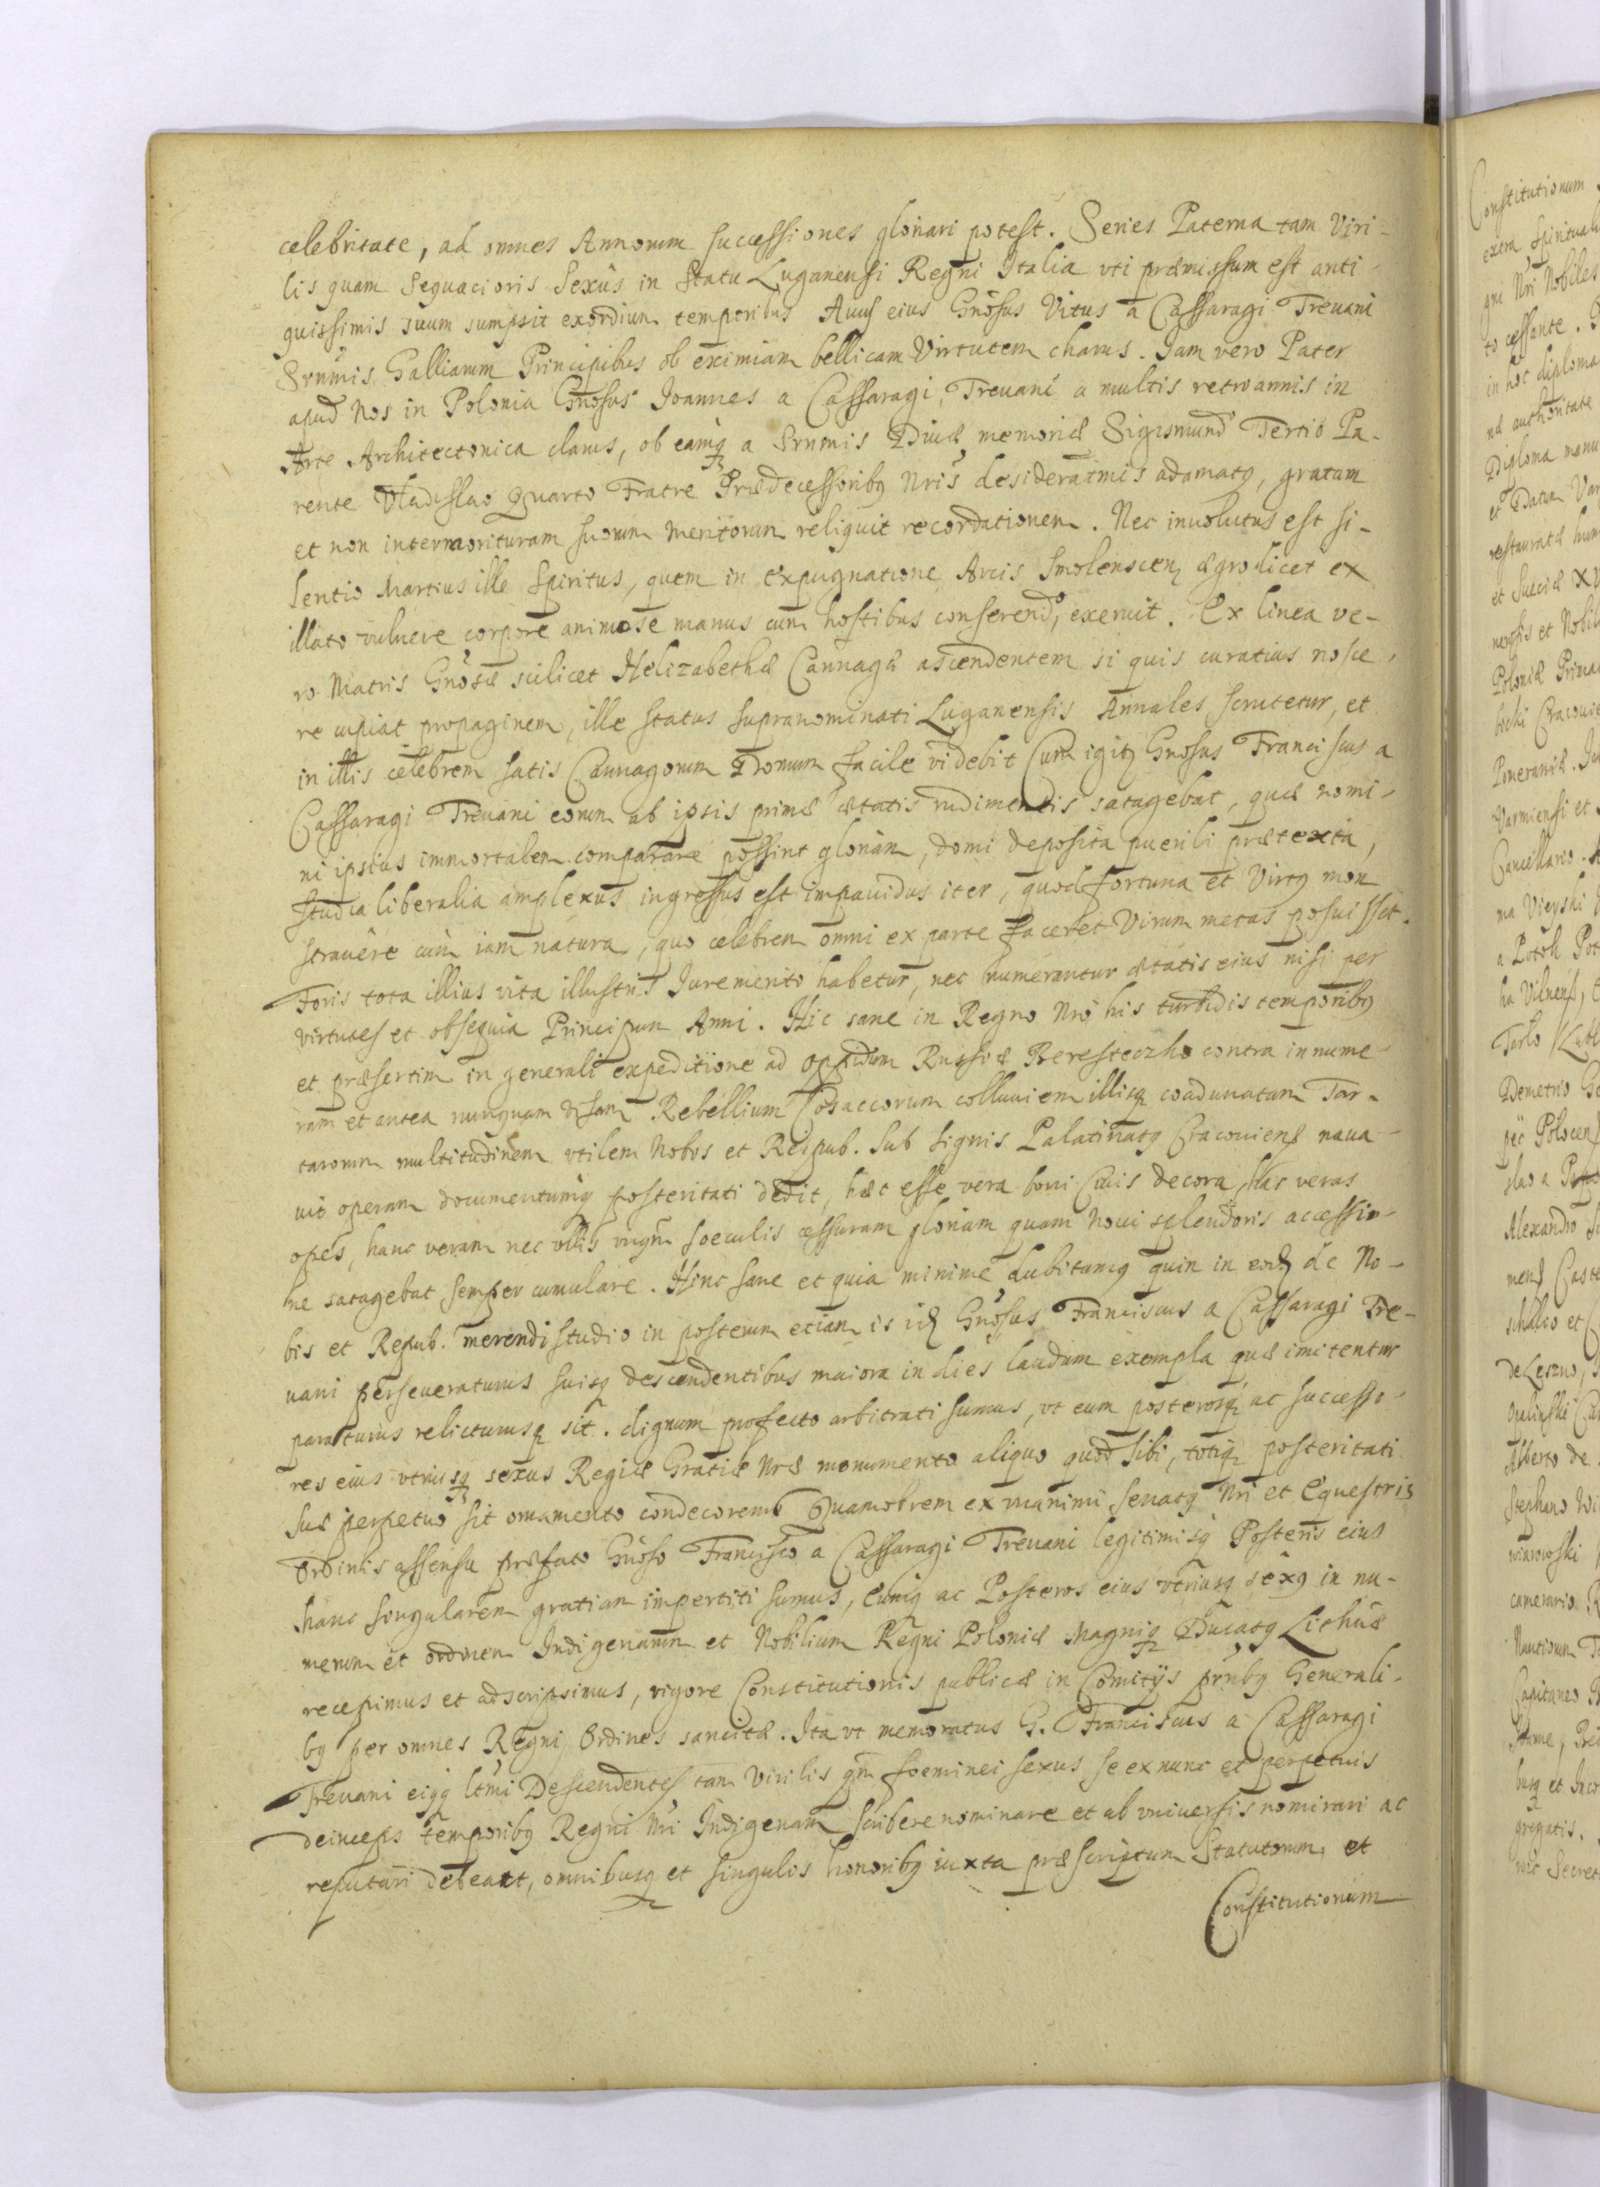 celebritate, ad omnes Annorum successiones gloriari potest. Series Paterna tam Viri-
lis quam Sequacioris Sexûs in Statu Luganensi Regni Italiæ vti præmissum est anti-
quissimis suum sumpsit exordium temporibus Auus eius Gnosus Vitus a Cassaragi Treuani
Srnmis Galliarum Principibus ob eximiam bellicam Virtutem charus. Iam vero Pater
apud Nos in Polonia Gnosus Ioannes a Cassaragi Treuani a multis retro annis in
Arte Architectonica clarus, ob eamq a Srnmis Diuæ memoriæ Sigismundo Tertio Pa-
rente Vladislao Quarto Fratre Prædecessoribq Nris desideratmis adamatq, gratam
et non intermorituram suorum meritorum reliquit recordationem. Nec inuolutus est si-
lentio Martius ille Spiritus, quem in expugnatione Arcis Smolenscen ægro licet ex
illato vulnere corpore animose manus cum hostibus conserendo, exeruit. Ex linea ve-
ro Matris Gnosæ scilicet Helizabethæ Cannagæ ascendentem si quis curatius nosce-
re cupiat propaginem, ille status supranominati Luganensis Annales scrutetur, et
in illis celebrem satis Cannagorum Domum facile videbit Cum igitq Gnosus Franciscus a
Cassaragi Treuani eorum ab ipsis primæ ætatis rudimentis satagebat, quæ nomi-
ni ipsius immortalem comparare possint gloriam, domi deposita puerili prætexta,
studia liberalia amplexus ingressus est impauidus iter, quod fortuna et Virtq mon
strauêre cui iam natura, quo celebrem omni ex parte faceret Virum metas posuisset.
Foris tota illius vita illustris Iure merito habetur, nec numerantur ætatis eius nisi per
virtutes et obsequia Principum Anni. Hic sane in Regno Nro his turbidis temporibq
et præsertim in generali expeditione ad oppidum Russiæ Beresteczko contra innume-
ram et antea nunquam visam Rebellium Cosaccorum colluuiem illisq coadunatam Tar-
tarorum multitudinem vtilem Nobis et Reipub. sub signis Palatinatq Cracouiens naua-
uit operam documentumq posteritati dedit, hæc esse vera boni Ciuis decora, has veras
opes, hanc veram nec vllis vnqm soeculis cessuram gloriam quam noui splendoris accessio-
ne satagebat semper cumulare. Hinc sane et quia minime dubitamq quin in eod de No-
bis et Repub. merendi studio in posterum etiam is id Gnosus Franciscus a Cassaragi Tre-
uani perseueraturus suisq descendentibus maiora in dies laudum exempla quæ imitentur
paraturus relicturusq sit. dignum profecto arbitrati sumus, vt eum posterosq ac successo-
res eius vtriusq sexus Regiæ Gratiæ Nræ monumento aliquo quod sibi, totiq posteritati
suæ perpetuo sit ornamento condecoremq Quamobrem ex vnanimi senatq Nri et Equestris
Ordinis assensu præfato Gnoso Francisco a Cassaragi Treuani legitimisq Posteris eius
hanc singularem gratiam impertiti sumus, Eumq ac Posteros eius vtriusq sexq in nu-
merum et ordinem Indigenarum et Nobilium Regni Poloniæ Magniq Ducatq Lithuæ
recepimus et adscripsimus, vigore Constitutionis publicæ in Comitijs prnbq Generali-
bq per omnes Regni Ordines sancitæ. Ita vt memoratus G. Franciscus a Cassaragi
Treuani eiqq ltmi Descendentes tam Virilis qm foeminei sexus se ex nunc et perpetuis
deinceps temporibq Regni Nri Indigenam scribere nominare et ab vniuersis nominari ac
reputari debeat, omnibusq et singulis honoribq iuxta præscriptum Statutorum et
Constitutionum
Constitutionum
extra Spirituali
gni Nri Nobiles
to cessante.
in hoc diploma
na authoritate
Diploma manu
et Datum Var
restauratæ hum
et Sueciæ XV
nerosis et Nobil
Poloniæ Prima
Pomeraniæ.
Varmiensi et
Cancellario.
a Potok Pot
Demetrio
Alexandro
de Leszno,
Alberto de
Stephano
camerario
Capitaneo
gregatis.